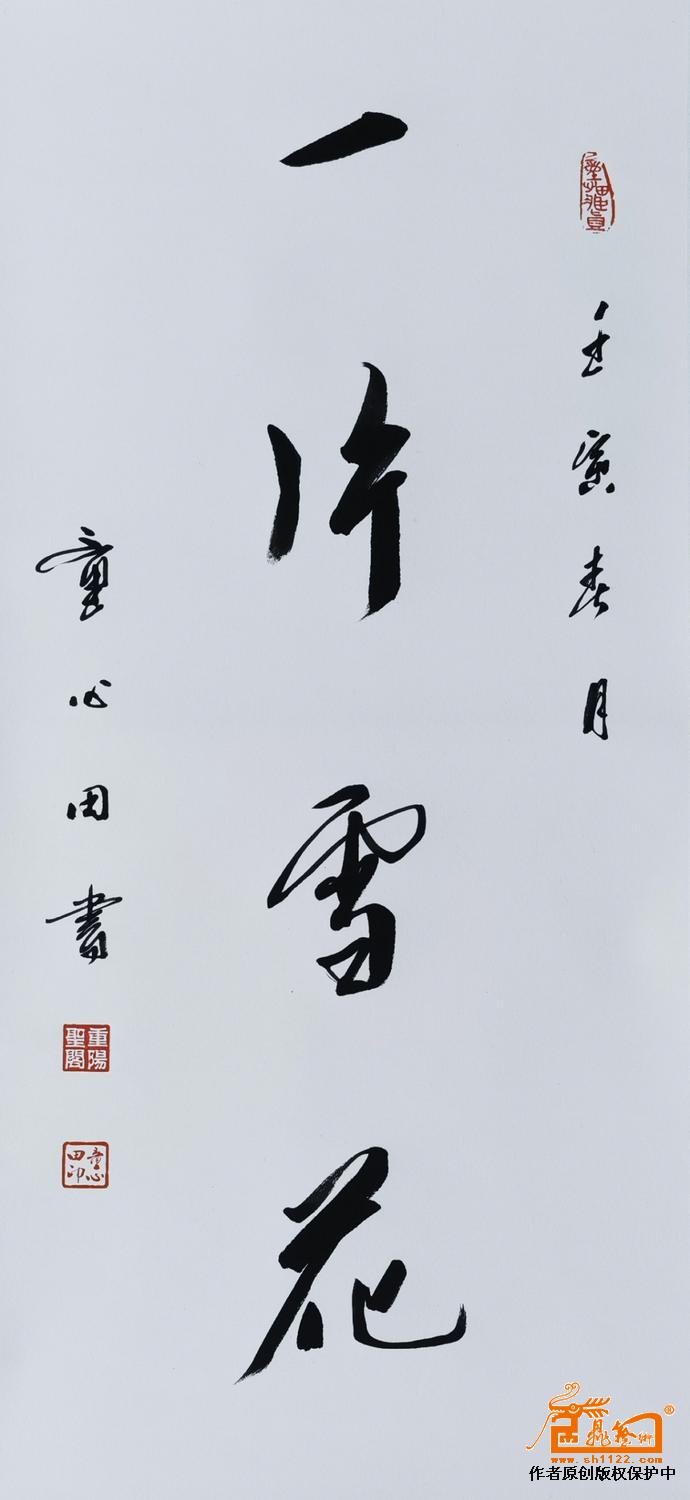 壬寅春月
一片雪花
童心田書
重陽
聖閣
童心
田印
www.sh1122.com
作者原创版权保护中